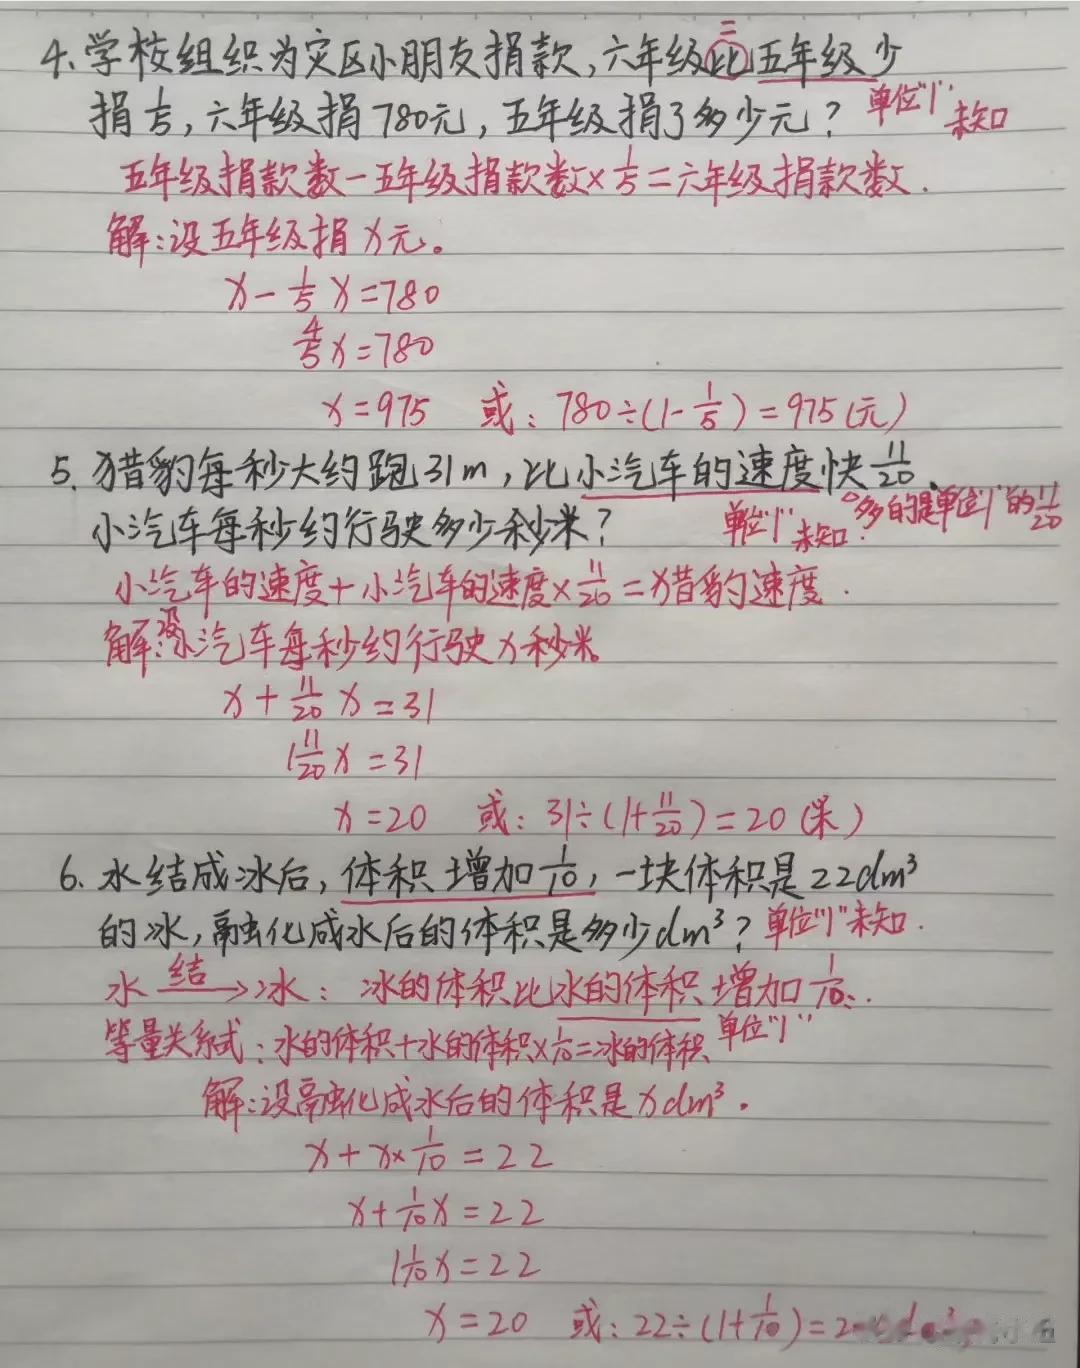 4.学校组织为灾区小朋友捐款,六年级比五年级少
捐1/5,六年级捐780元,五年级捐了多少元? 单位"1"未知
五年级捐款数-五年级捐款数×1/5=六年级捐款数.
解:设五年级捐x元。
x-1/5x=780
4/5x=780
x=975 或:780÷(1-1/5)=975(元)
5.猎豹每秒大约跑31m,比小汽车的速度快11/20.
小汽车每秒约行驶多少秒米? 单位"1"未知. 多的是单位"1"的11/20
小汽车的速度+小汽车的速度×11/20=猎豹速度.
解:设小汽车每秒约行驶x秒米。
x+11/20x=31
1 11/20x=31
x=20 或:31÷(1+11/20)=20(米)
6.水结成冰后,体积增加1/10,一块体积是22dm³
的冰,融化成水后的体积是多少dm³? 单位"1"未知.
水 结→ 冰: 冰的体积比水的体积增加1/10.
等量关系式:水的体积+水的体积×1/10=冰的体积 单位"1"
解:设融化成水后的体积是xdm³.
x+x×1/10=22
x+1/10x=22
1 1/10x=22
x=20 或:22÷(1+1/10)=2